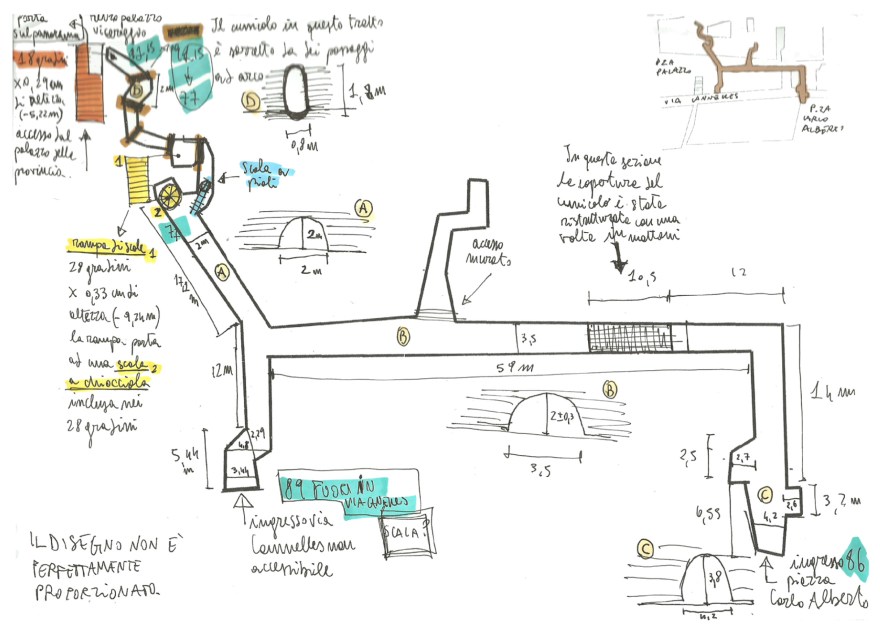 porta
sul panorama
retro palazzo
viceregio
Il cunicolo in questo tratto
è sorretto da dei passaggi
ad arco
18 gradini
x 0,29 cm
di altezza
(-5,22m)
accesso dal
palazzo della
provincia.
77
D
2m
D
1,8m
0,8m
P.ZA
PALAZZO
VIA CANNELLES
P.ZA
CARLO
ALBERTO
1
2
scala a
pioli
In questa sezione
la copertura del
cunicolo è stata
ristrutturata con una
volta in mattoni
A
2m
2m
2m
A
rampa di scale 1
28 gradini
x 0,33 cm di
altezza (-9,24m)
la rampa porta
ad una scala 2
a chiocciola
inclusa nei
28 gradini
accesso
murato
10,5
12
B
3,5
59 m
12m
14 m
B
2±0,3
3,5
5,44
m
2,79
4,8
3,44
2,5
2,7
C
2,6
3,2m
4,2
6,55
89 FUORI IN
VIA CANNELLES
SCALA?
ingresso via
Cannelles non
accessibile
IL DISEGNO NON È
PERFETTAMENTE
PROPORZIONATO.
C
3,8
4,2
ingresso 86
piazza
Carlo Alberto